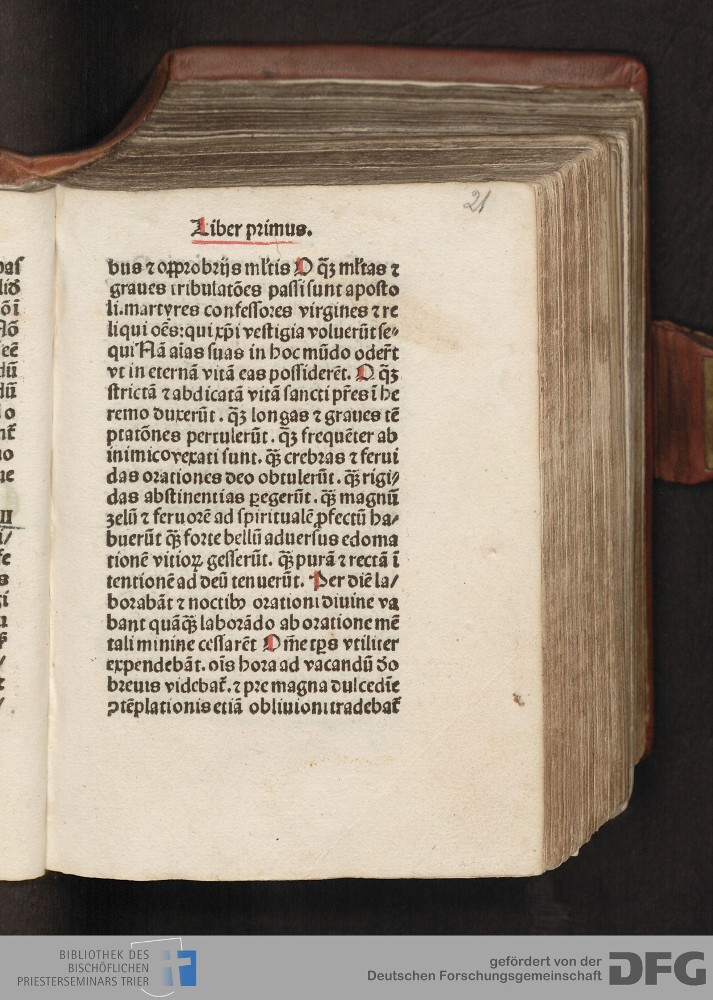 21
Liber primus.
bus ⁊ opprobrijs ml̃tis O q̃ꝫ ml̃tas ⁊
graues tribulatões passi sunt aposto
li. martyres confessores virgines ⁊ re
liqui oẽs: qui xp̃i vestigia voluerũt se⸗
qui Nã aĩas suas in hoc mũdo oder̃t
vt in eternã vitã eas possiderẽt. O q̃ꝫ
strictã ⁊ abdicatã vitã sancti pr̃es ĩ he
remo duxerũt. q̃ꝫ longas ⁊ graues tẽ
ptatõnes pertulerũt. q̃ꝫ frequẽter ab
inimico vexati sunt. q̃ꝫ crebras ⁊ ferui
das orationes deo obtulerũt. q̃ꝫ rigi/
das abstinentias ꝑegerũt. q̃ꝫ magnũ
zelũ ⁊ feruorẽ ad spiritualẽ ꝓfectũ ha/
buerũt q̃ꝫ forte bellũ aduersus edoma
tionẽ vitioꝝ gesserũt. q̃ꝫ purã ⁊ rectã ĩ
tentionẽ ad deũ tenuerũt. Per diẽ la/
borabãt ⁊ noctibꝰ orationi diuine va
bant quãq̃ꝫ laborãdo ab oratione mẽ
tali minine cessarẽt O m̃e tp̃s vtiliter
expendebãt. oĩs hora ad vacandũ do
breuis videbat̃. ⁊ pre magna dulcedĩe
ꝯtẽplationis etiã obliuioni tradebat̃
BIBLIOTHEK DES
BISCHÖFLICHEN
PRIESTERSEMINARS TRIER
gefördert von der
Deutschen Forschungsgemeinschaft
DFG